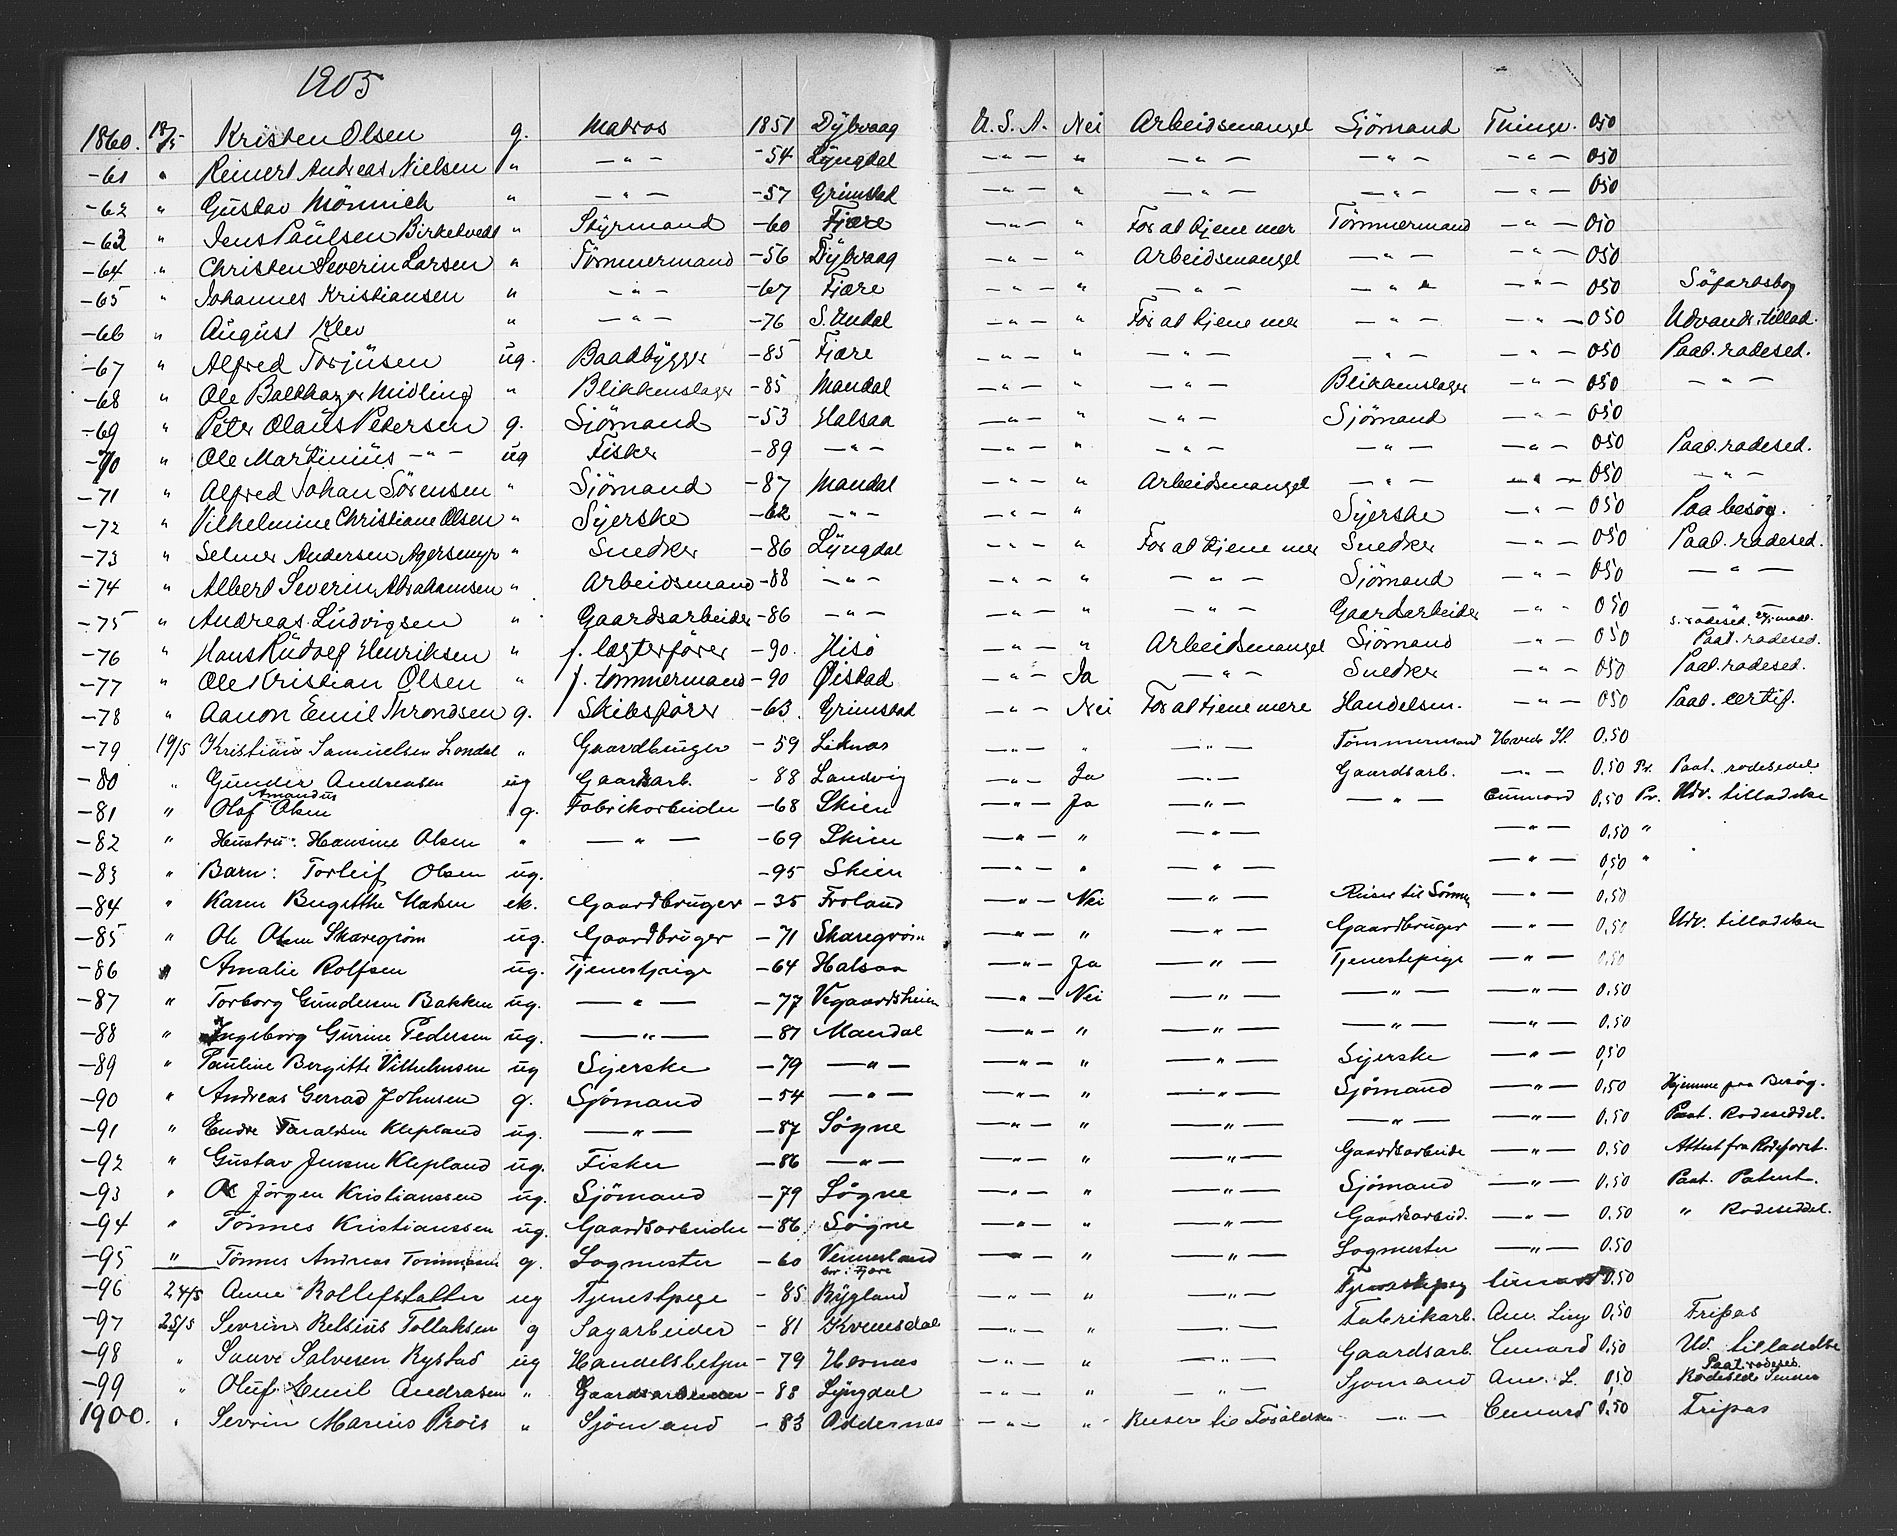 1905
1860. 18/5 Kristen Olsen g. Matros 1851 Dybvaag U.S.A. Nei Arbeidsmangel Sjömand Thingv. 050
-61 " Reinert Andreas Nielsen " -"- -54 Lyngdal -"- " -"- -"- -"- 050
-62 " Gustav Mönnich " -"- -57 Grimstad -"- " -"- -"- -"- 050
-63 " Jens Paulsen Birketvedt " Styrmand -60 Fjære -"- " For at tjene mer Tömmermand -"- 050
-64 " Christen Severin Larsen " Tömmermand -56 Dybvaag -"- " Arbeidsmangel -"- -"- 050
-65 " Johannes Kristiansen " -"- -67 Fjære -"- " -"- -"- -"- 050 Söfartsbog
-66 " August Klev " -"- -76 S. Undal -"- " For at tjene mer -"- -"- 050 Udvandr. tillad.
-67 " Alfred Torjusen ug. Baadbygger -85 Fjære -"- " -"- -"- -"- 050 Paat. rodesed.
-68 " Ole Balthazar Midling " Blikkenslager -85 Mandal -"- " -"- Blikkenslager -"- 050 -"-
-69 " Peter Olaus Petersen g. Sjömand -53 Halsaa -"- " -"- Sjömand -"- 050
-70 " Ole Martinius -"- ug Fisker -89 -"- -"- " -"- -"- -"- 050 Paat. rodesed.
-71 " Alfred Johan Sörensen " Sjömand -87 Mandal -"- " Arbeidsmangel -"- -"- 050 -"-
-72 " Vilhelmine Christiane Olsen " Syerske -62 -"- -"- " Syerske -"- 050 Paa besøg.
-73 " Selmer Andersen Agersmyr " Snedker -86 Lyngdal -"- " For at tjene mer Snedker -"- 050 Paat. rodesed.
-74 " Albert Severin Abrahamsen " Arbeidsmand -88 -"- -"- " -"- Sjömand -"- 050 -"-
-75 " Andreas Ludvigsen " Gaardsarbeider -86 -"- -"- " -"- Gaardarbeider -"- 050 -"-
-76 " Hans Rudolf Henriksen " f. lægterförer -90. Hisö -"- " Arbeidsmangel Sjömand -"- 050 Paat. rodesed.
-77 " Ole Kristian Olsen " f. tömmermand -90 Øistad -"- Ja -"- Snedker -"- 050 Paat. rodesed.
-78 " Aanon Emil Throndsen g. Skibsförer -63. Grimstad -"- Nei For at tjene mere Handelsm. -"- 050 Paat. certif.
-79 19/5 Kristian Samuelsen Londal " Gaardbruger -59 Liknes -"- " -"- Tömmermand 0.50
-80 " Gunder Andreasen ug Gaardsarb. -88 Landvig -"- Ja -"- Gaardsarb. -"- 0.50 Pr. Paat. rodesedel
-81 " Olaf Amandus Olsen g. Fabrikarbeider -68 Skien -"- Ja -"- -"- Cunnard 0,50 Pr. Udv. tilladelse
-82 " Hustru: Hansine Olsen " -"- -69 Skien -"- " -"- -"- 0,50 "
-83 " Barn: Torleif Olsen ug. -95 Skien -"- " -"- -"- 0,50 "
-84 " Karen Birgitthe Madsen ek. Gaardbruger -35 Froland -"- Nei -"- Reiser til Sönnen -"- 0,50
-85 " Ole Olsen Skaregröm ug. Gaardbruger -71 Skaregröm -"- " -"- Gaardbruger -"- 0,50 Udv. tilladelse
-86 " Amalie Rolfsen ug. Tjenestpige -64 Halsaa -"- Ja -"- Tjenestepige -"- 0,50
-87 " Torborg Gundersen Bakken ug. -"- -77 Vegaardsheien -"- Nei -"- -"- -"- 0.50
-88 " Ingeborg Gurine Pedersen ug. -"- -87 Mandal -"- " -"- -"- -"- 0,50
-89 " Pauline Bergitte Vilhelmsen ug Syerske -79 -"- -"- " -"- Syerske -"- 0,50
-90 " Andreas Gerrad Johnsen g. Sjömand -54 -"- -"- " -"- Sjömand -"- 0,50 Hjemme paa Besøg.
-91 " Endre Taraldsen Klepland ug. -"- -87 Søgne -"- " -"- -"- -"- 0.50 Paat. Rodeseddel.
-92 " Gustav Jensen Klepland ug. Fisker -86 -"- -"- " -"- Gaardsarbeide -"- 0.50 Attest fra Rodeforst.
-93 " Ole Jörgen Kristianssen ug. Sjömand -79 Søgne -"- " -"- Sjömand -"- 0.50 Paat. Patent.
-94 " Tönnes Kristianssen ug. Gaardsarbeider -86 Søgne -"- " -"- Gaardsarbeid. -"- 0.50 " Rodeseddel.
-95 " Tönnes Andreas Tönnesen g. Sagmester -60 Vennesland bor i Fjære -"- " -"- Sagmester -"- 0.50
-96 24/5 Anne Rollefsdatter ug Tjenestpige -85 Bygland -"- " -"- Tjenestepeg Cunard 0,50
-97 25/5 Sevrin Relsius Tollaksen g Sagarbeider -81 Kvinesdal -"- " -"- Fabrikarb. Am. Linje 0,50 Fripas
-98 " Sauve Salvesen Rystad ug Handelsbetjen -79 Hornnes -"- " -"- Gaardsarb. Cunard 0,50 Ud. tilladelse
-99 " Oluf Emil Andreasen " Gaardsarbeider -88 Lyngdal -"- " -"- Sjomand Am. L. 0,50 Paat rodesed.
1900. " Sevrin Marius Prois " Sjömand -83 Oddernes -"- " Reiser til Forældre -"- Cunard 0,50 Fripas